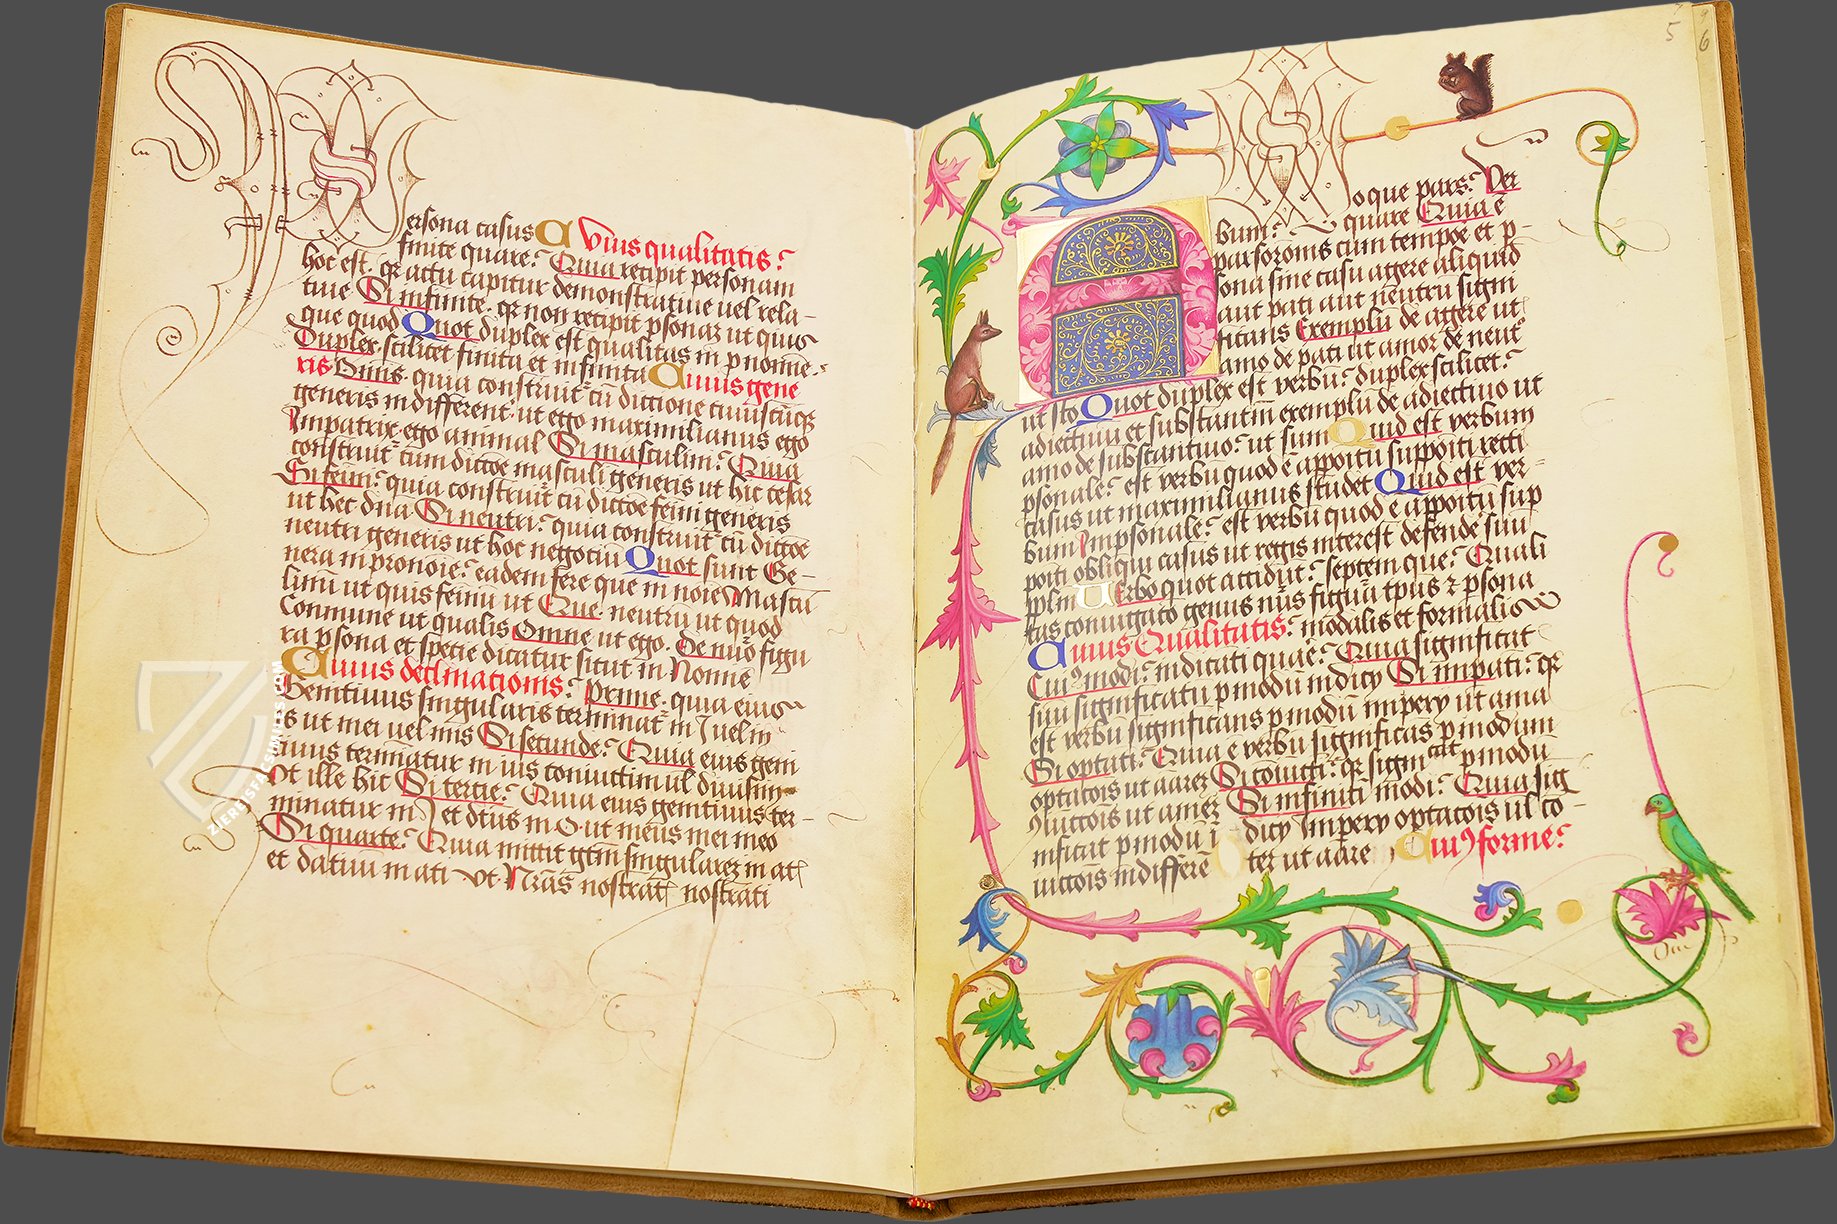 ersona casus Cuius qualitatis?
finite quare? Quia recipit personam
hoc est. qr actu capitur demonstratiue uel rela-
tiue Si infinite. qr non recipit psonaz ut quis
que quod Quot duplex est qualitas in pnomie.
Duplex scilicet finita et infinita Cuius gene
ris Omis. quia construit cu dictione cuiuscuqz
generis indifferent. ut ego maximilianus ego
Impatrix ego animal Si masculini? Quia
construit cum dictoe masculi generis ut hic cesar
Si femi? quia construit cu dictoe femi generis
ut hec dna Si neutri? quia construit cu dictoe
neutri generis ut hoc negociu Quot sunt Ge-
nera in pronoie? eadem fere que in noie Mascu
linu ut quis feminu ut Que neutru ut quod
Commune ut qualis Omne ut ego. De nuo figu
ra psona et specie dicatur sicut in Nomine
Cuius declinationis? Prime. quia eius
Genitiuus singularis terminat in I uel in
is ut mei uel mis Si secunde? Quia eius geni
tiuus terminatur in ius coniuctim ul diuisim
Vt ille hic Si tercie? Quia eius genitiuus ter-
minatur in I et dtus in O ut meus mei meo
Si quarte? Quia mittit gtm singularez in atz
et datiuu in ati vt Nras nostratz nostrati
oque pars? Ver
bum? quare Quia e
pars oronis cum tempoe et p-
sona sine casu agere aliquid
aut pati aut neutru signi
ficans Exemplu de agere ut
amo de pati ut amor de neut
ut sto Quot duplex est verbu? duplex scilicet?
adiectiuu et substantiuu exemplu de adiectiuo ut
amo de substantiuo? ut sum Quid est verbum
psonale? est verbu quod e appoitu suppoiti recti
casus ut maximilianus studet Quid est ver-
bum Impsonale? est verbu quod e appoitu sup
poiti obliqui casus ut regis interest defende suu
pplm Uerbo quot accidut? septem que? Quali
tas coniugaco genus nus figura tpus z psona
Cuius Qualitatis? modalis et formalis
Cui9 modi? indicati quare? Quia significat
suu significatu p modu indicy Si impati? qr
est verbu significans p modu impery ut ama
Si optati? Quia e verbu significas p modum
optacois ut aarez Si coiucti? qr significat p modu
9iuctois ut amez Si infiniti modi? Quia sig
nificat p modu i dicy Impery optacois ul co-
iuctois indiffere ter ut aare Cui9 forme?
5
96
ZIEREISFACSIMILES.COM